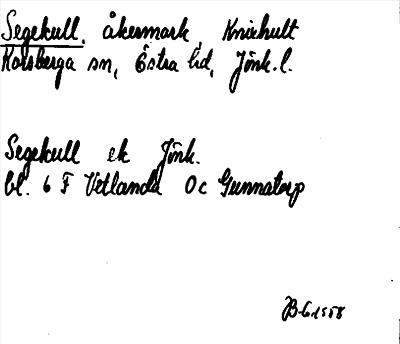 Segekull, åkermark, Knixhult
Korsberga sn, Östra hd, Jönk.l.
Segekull ek Jönk.
bl. 6 F Vetlanda Oc Gunnatorp
1958